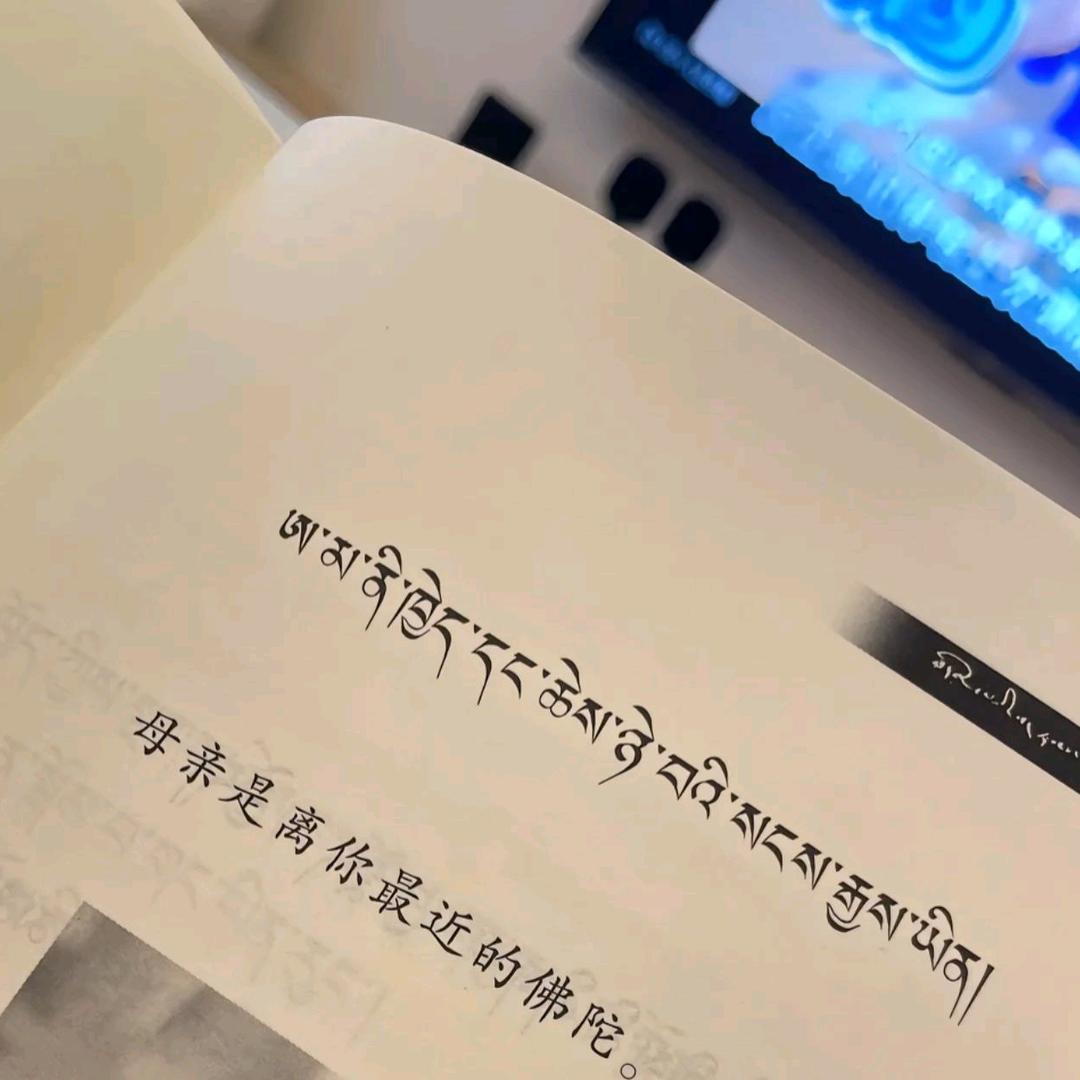 ཨ་མ་ནི་ཁྱོད་དང་ཆེས་ཉེ་བའི་སངས་རྒྱས་ཡིན།
母亲是离你最近的佛陀。